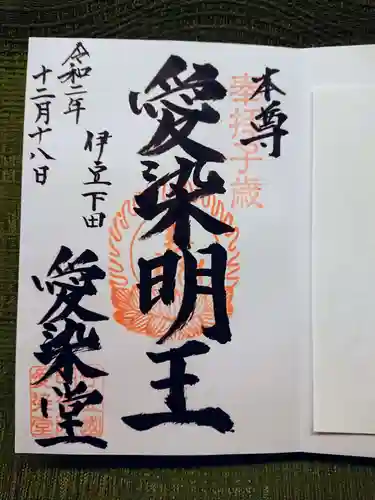 奉拝子歳
本尊
愛染明王
令和二年
十二月十八日
伊豆下田
愛染堂